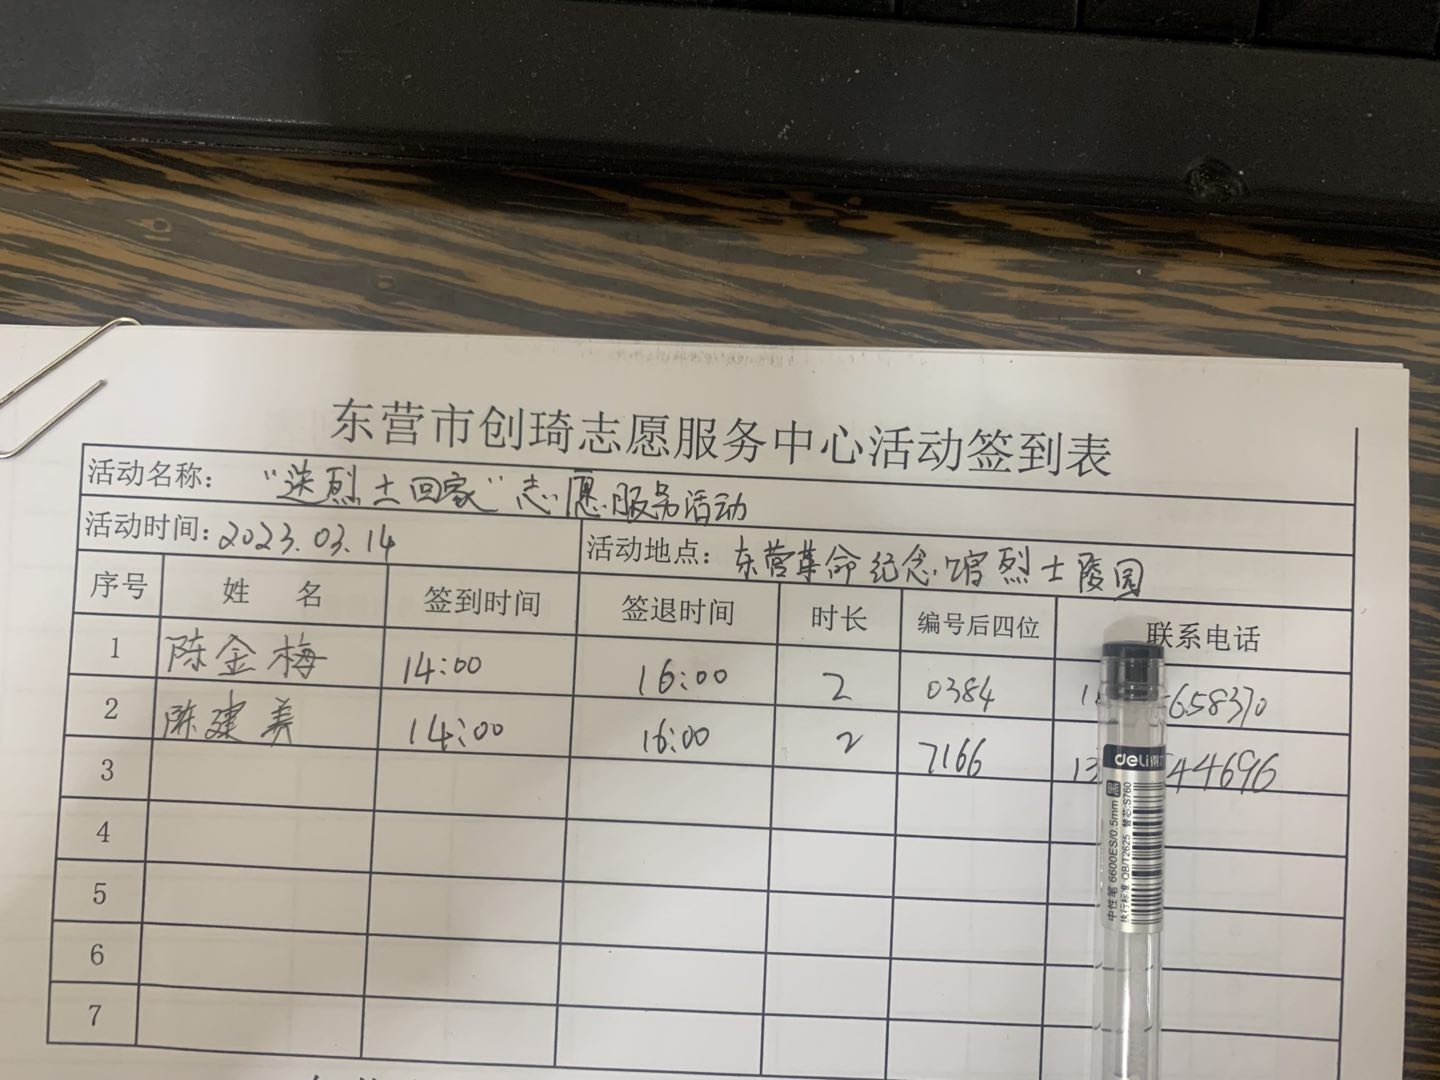 东营市创琦志愿服务中心活动签到表
活动名称： “送烈士回家”志愿服务活动
活动时间：2023.03.14 活动地点：东营革命纪念馆烈士陵园
序号 姓 名 签到时间 签退时间 时长 编号后四位 联系电话
1 陈金梅 14:00 16:00 2 0384 1 658370
2 陈建美 14:00 16:00 2 7166 13 44696
3
4
5
6
7
deli得力
中性笔 6600ES/0.5mm 黑
执行标准:QB/T2625 替芯:S760